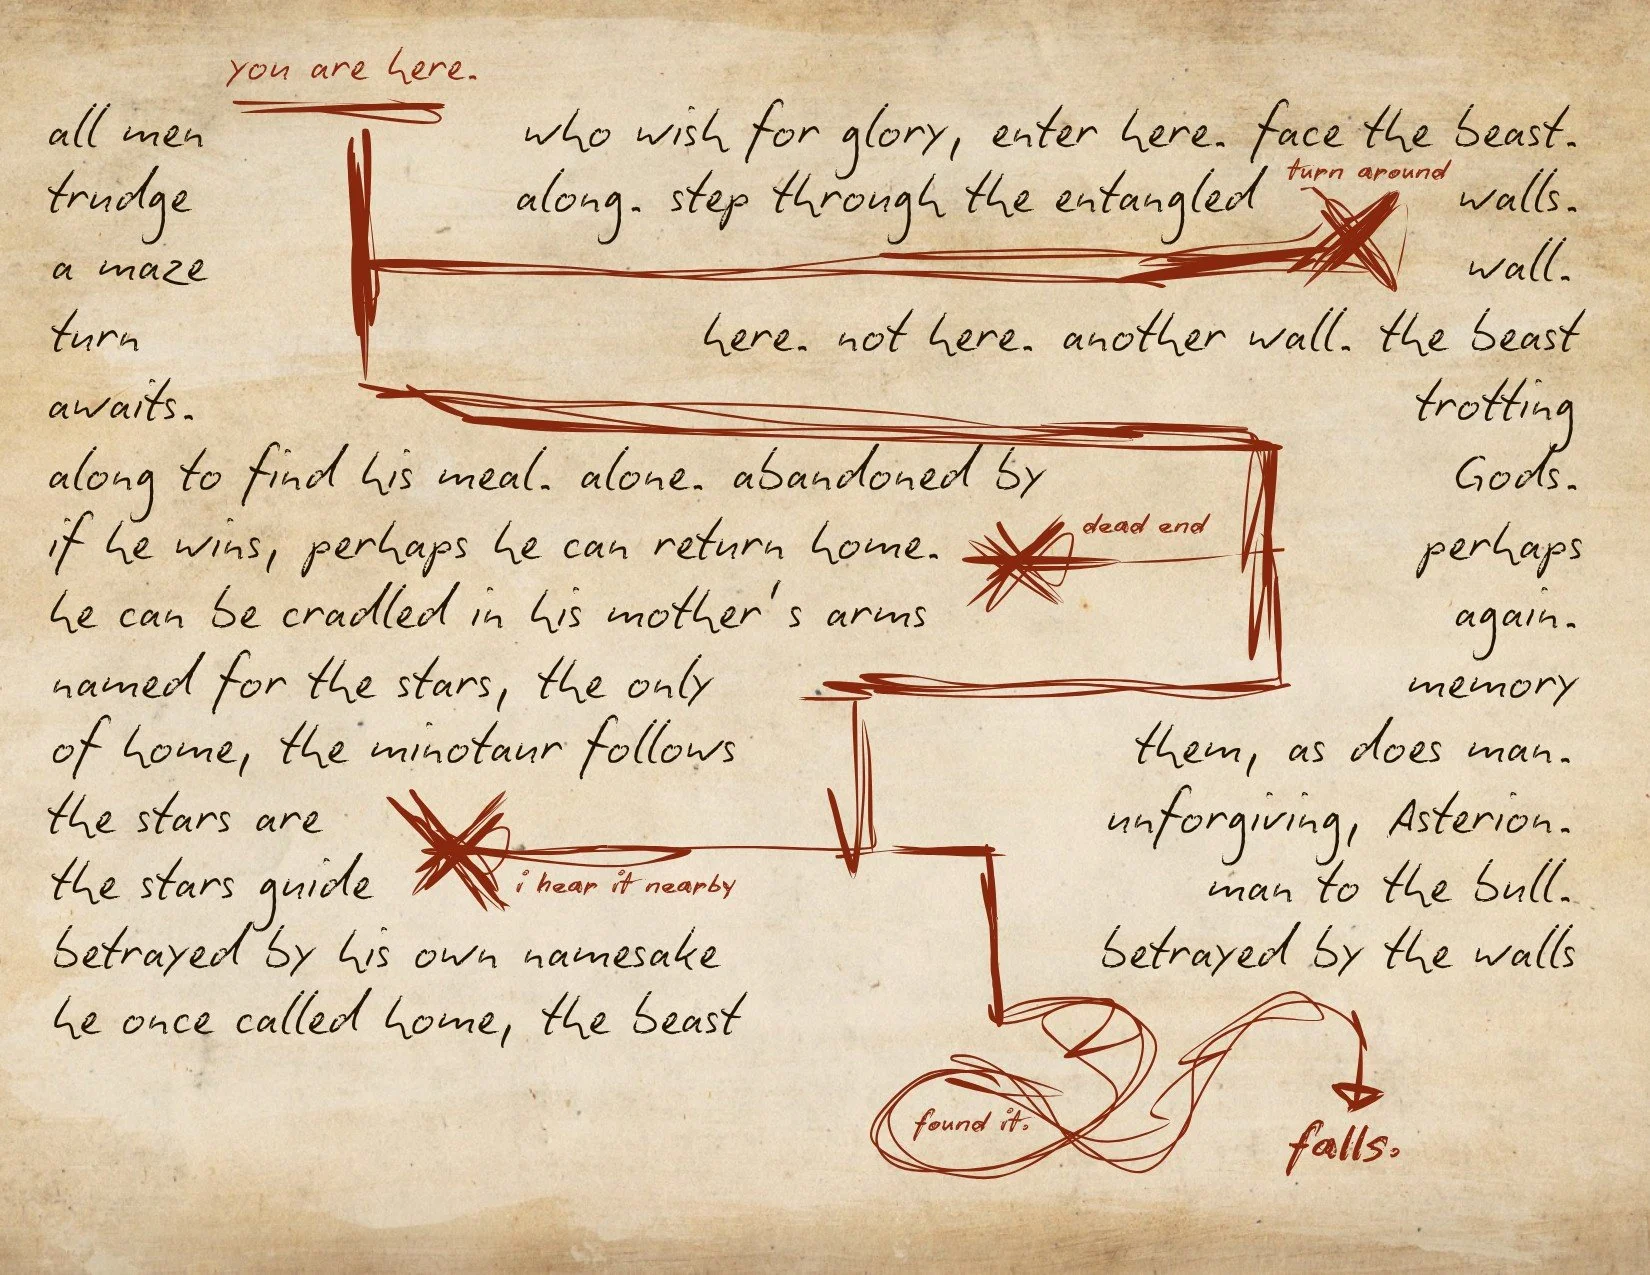 you are here.
all men who wish for glory, enter here. face the beast.
turn around
trudge along. step through the entangled walls.
a maze wall.
turn here. not here. another wall. the beast
awaits. trotting
along to find his meal. alone. abandoned by Gods.
dead end
if he wins, perhaps he can return home. perhaps
he can be cradled in his mother's arms again.
named for the stars, the only memory
of home, the minotaur follows them, as does man.
the stars are unforgiving, Asterion.
the stars guide man to the bull.
i hear it nearby
betrayed by his own namesake betrayed by the walls
he once called home, the beast
found it.
falls.